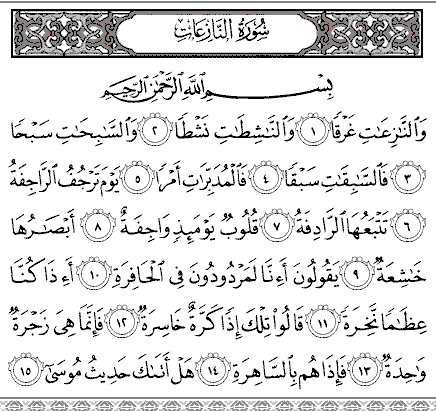 سُورَةُ النَّازِعَاتِ
بِسْمِ اللَّهِ الرَّحْمَٰنِ الرَّحِيمِ
وَالنَّازِعَاتِ غَرْقًا ١ وَالنَّاشِطَاتِ نَشْطًا ٢ وَالسَّابِحَاتِ سَبْحًا
٣ فَالسَّابِقَاتِ سَبْقًا ٤ فَالْمُدَبِّرَاتِ أَمْرًا ٥ يَوْمَ تَرْجُفُ الرَّاجِفَةُ
٦ تَتْبَعُهَا الرَّادِفَةُ ٧ قُلُوبٌ يَوْمَئِذٍ وَاجِفَةٌ ٨ أَبْصَارُهَا
خَاشِعَةٌ ٩ يَقُولُونَ أَءِنَّا لَمَرْدُودُونَ فِي الْحَافِرَةِ ١٠ أَءِذَا كُنَّا
عِظَامًا نَّخِرَةً ١١ قَالُوا تِلْكَ إِذًا كَرَّةٌ خَاسِرَةٌ ١٢ فَإِنَّمَا هِيَ زَجْرَةٌ
وَاحِدَةٌ ١٣ فَإِذَا هُم بِالسَّاهِرَةِ ١٤ هَلْ أَتَىٰكَ حَدِيثُ مُوسَىٰ ١٥